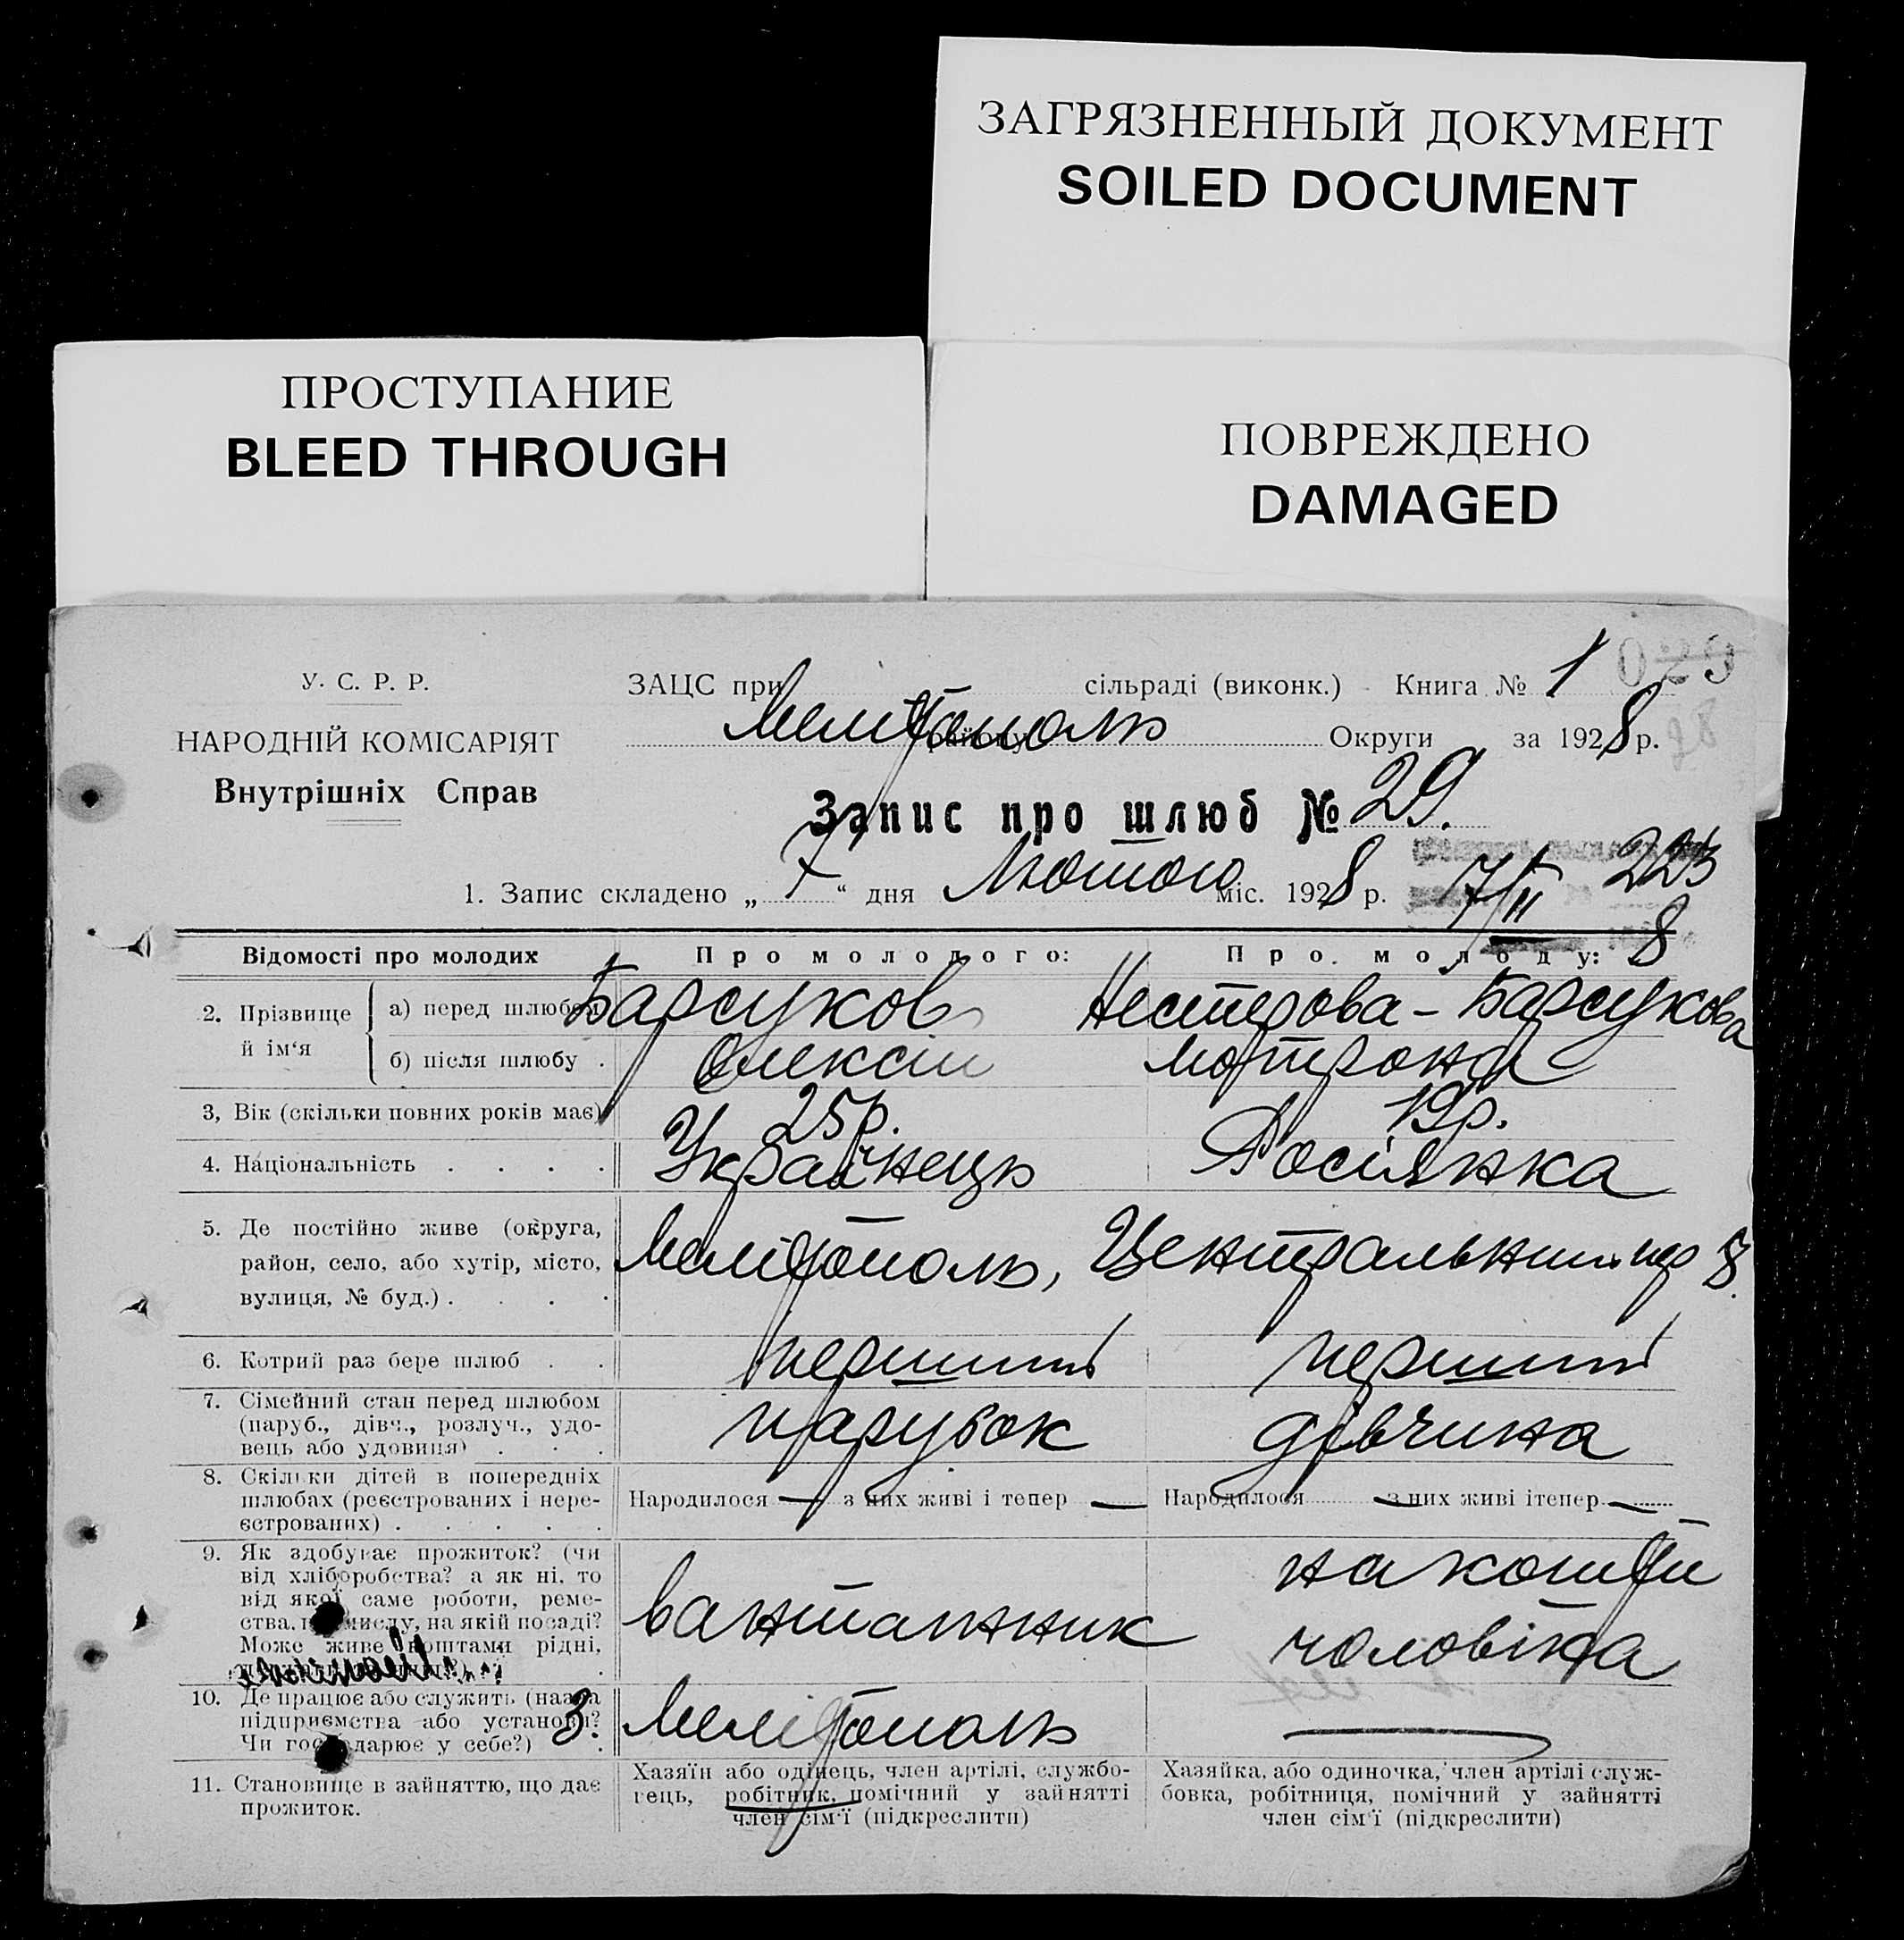 ЗАГРЯЗНЕННЫЙ ДОКУМЕНТ
SOILED DOCUMENT
ПРОСТУПАНИЕ
BLEED THROUGH
ПОВРЕЖДЕНО
DAMAGED
У. С. Р. Р.
НАРОДНІЙ КОМІСАРІЯТ
Внутрішніх Справ
029
28
ЗАЦС при сільраді (виконк.) Книга № 1
Мелітополь району Округи за 1928 р.
Запис про шлюб № 29.
1. Запис складено „ 7 “ дня Лютого міс. 1928 р. 7/II 223
8
Відомості про молодих Про молодого: Про молоду:
2. Прізвище й ім‘я а) перед шлюбом Барсуков Нестерова - Барсукова
б) після шлюбу . Олексій Мотрона
3, Вік (скільки повних років має) 25р. 19р.
4. Національність . . . . Українець Росіянка
5. Де постійно живе (округа,
район, село, або хутір, місто,
вулиця, № буд.) . . . .
Мелітополь, Центральний 8.
6. Котрий раз бере шлюб . . перший перший
7. Сімейний стан перед шлюбом
(паруб., дівч., розлуч., удо-
вець або удовиця) . . .
парубок дівчина
8. Скільки дітей в попередніх
шлюбах (реєстрованих і нере-
єстрованих) . . . . .
Народилося — з них живі і тепер — Народилося — з них живі ітепер —
9. Як здобуває прожиток? (чи
від хліборобства? а як ні, то
від якої саме роботи, реме-
ства, промислу, на якій посаді?
Може живе коштами рідні,
вантажник
на кошти
чоловіка
10. Де працює або служить (назва
підприємства або установи?
Чи господарює у себе?) .
З. Мелітополь —
11. Становище в зайняттю, що дає
прожиток.
Хазяїн або одінець, член артілі, службо-
вець, робітник, помічний у зайнятті
член сім‘ї (підкреслити)
Хазяйка, або одиночка, член артілі служ-
бовка, робітниця, помічний у зайнятті
член сім‘ї (підкреслити)